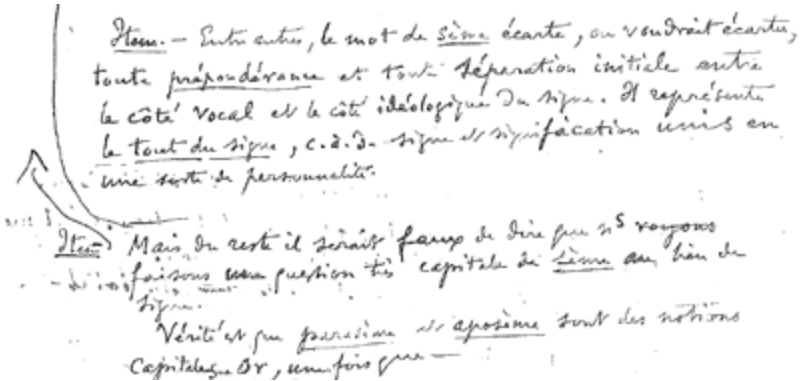 Item. — Entre autres, le mot de sème écarte, ou voudrait écarter,
toute prépondérance et toute séparation initiale entre
le côté vocal et le côté idéologique du signe. Il représente
le tout du signe, c.à.d. signe et signification unis en
une sorte de personnalité.
Item Mais du reste il serait faux de dire que ns voyons
faisons une question très capitale de sème au lieu de
signe.
Vérité est que parasème et aposème sont des notions
capitales Or, une fois que —